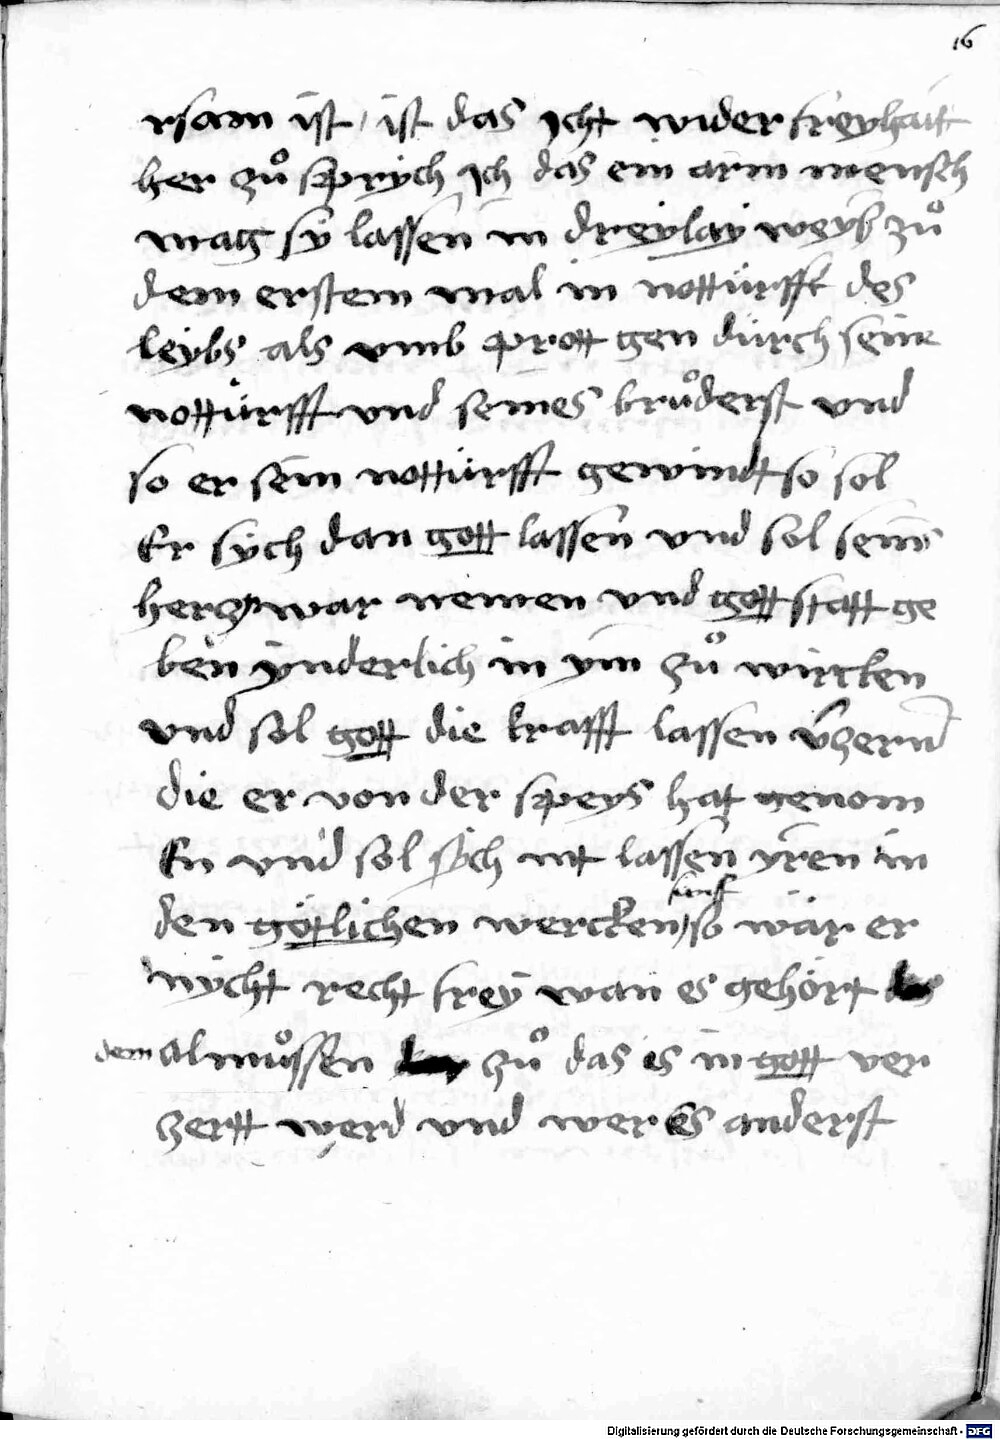 16
rsam ist / ist das icht wider freyhait
her zů sprych ich das ein arm mensch
mag sÿ lassen in dreylay weyß zů
dem erstem mal in nottürfft des
leybs als vmb prott gen dürch seine
nottürfft vnd seines brůderst vnd
so er sein nottürfft gewindt so sol
Er sÿch dan gott lassen vnd sol seins
hercz war nemen vnd gott statt ge
ben ynderlich in ym zů wircken
vnd sol gott die krafft lassen v̈zern
die er von der speys hat genom
En vnd sol sÿch nit lassen yren in
den götlichen wercken sunst so wär er
nÿcht recht freÿ wan es gehört
dem almůssen zů das es in gott ver
zertt werd vnd wer es anderst
Digitalisierung gefördert durch die Deutsche Forschungsgemeinschaft - DFG